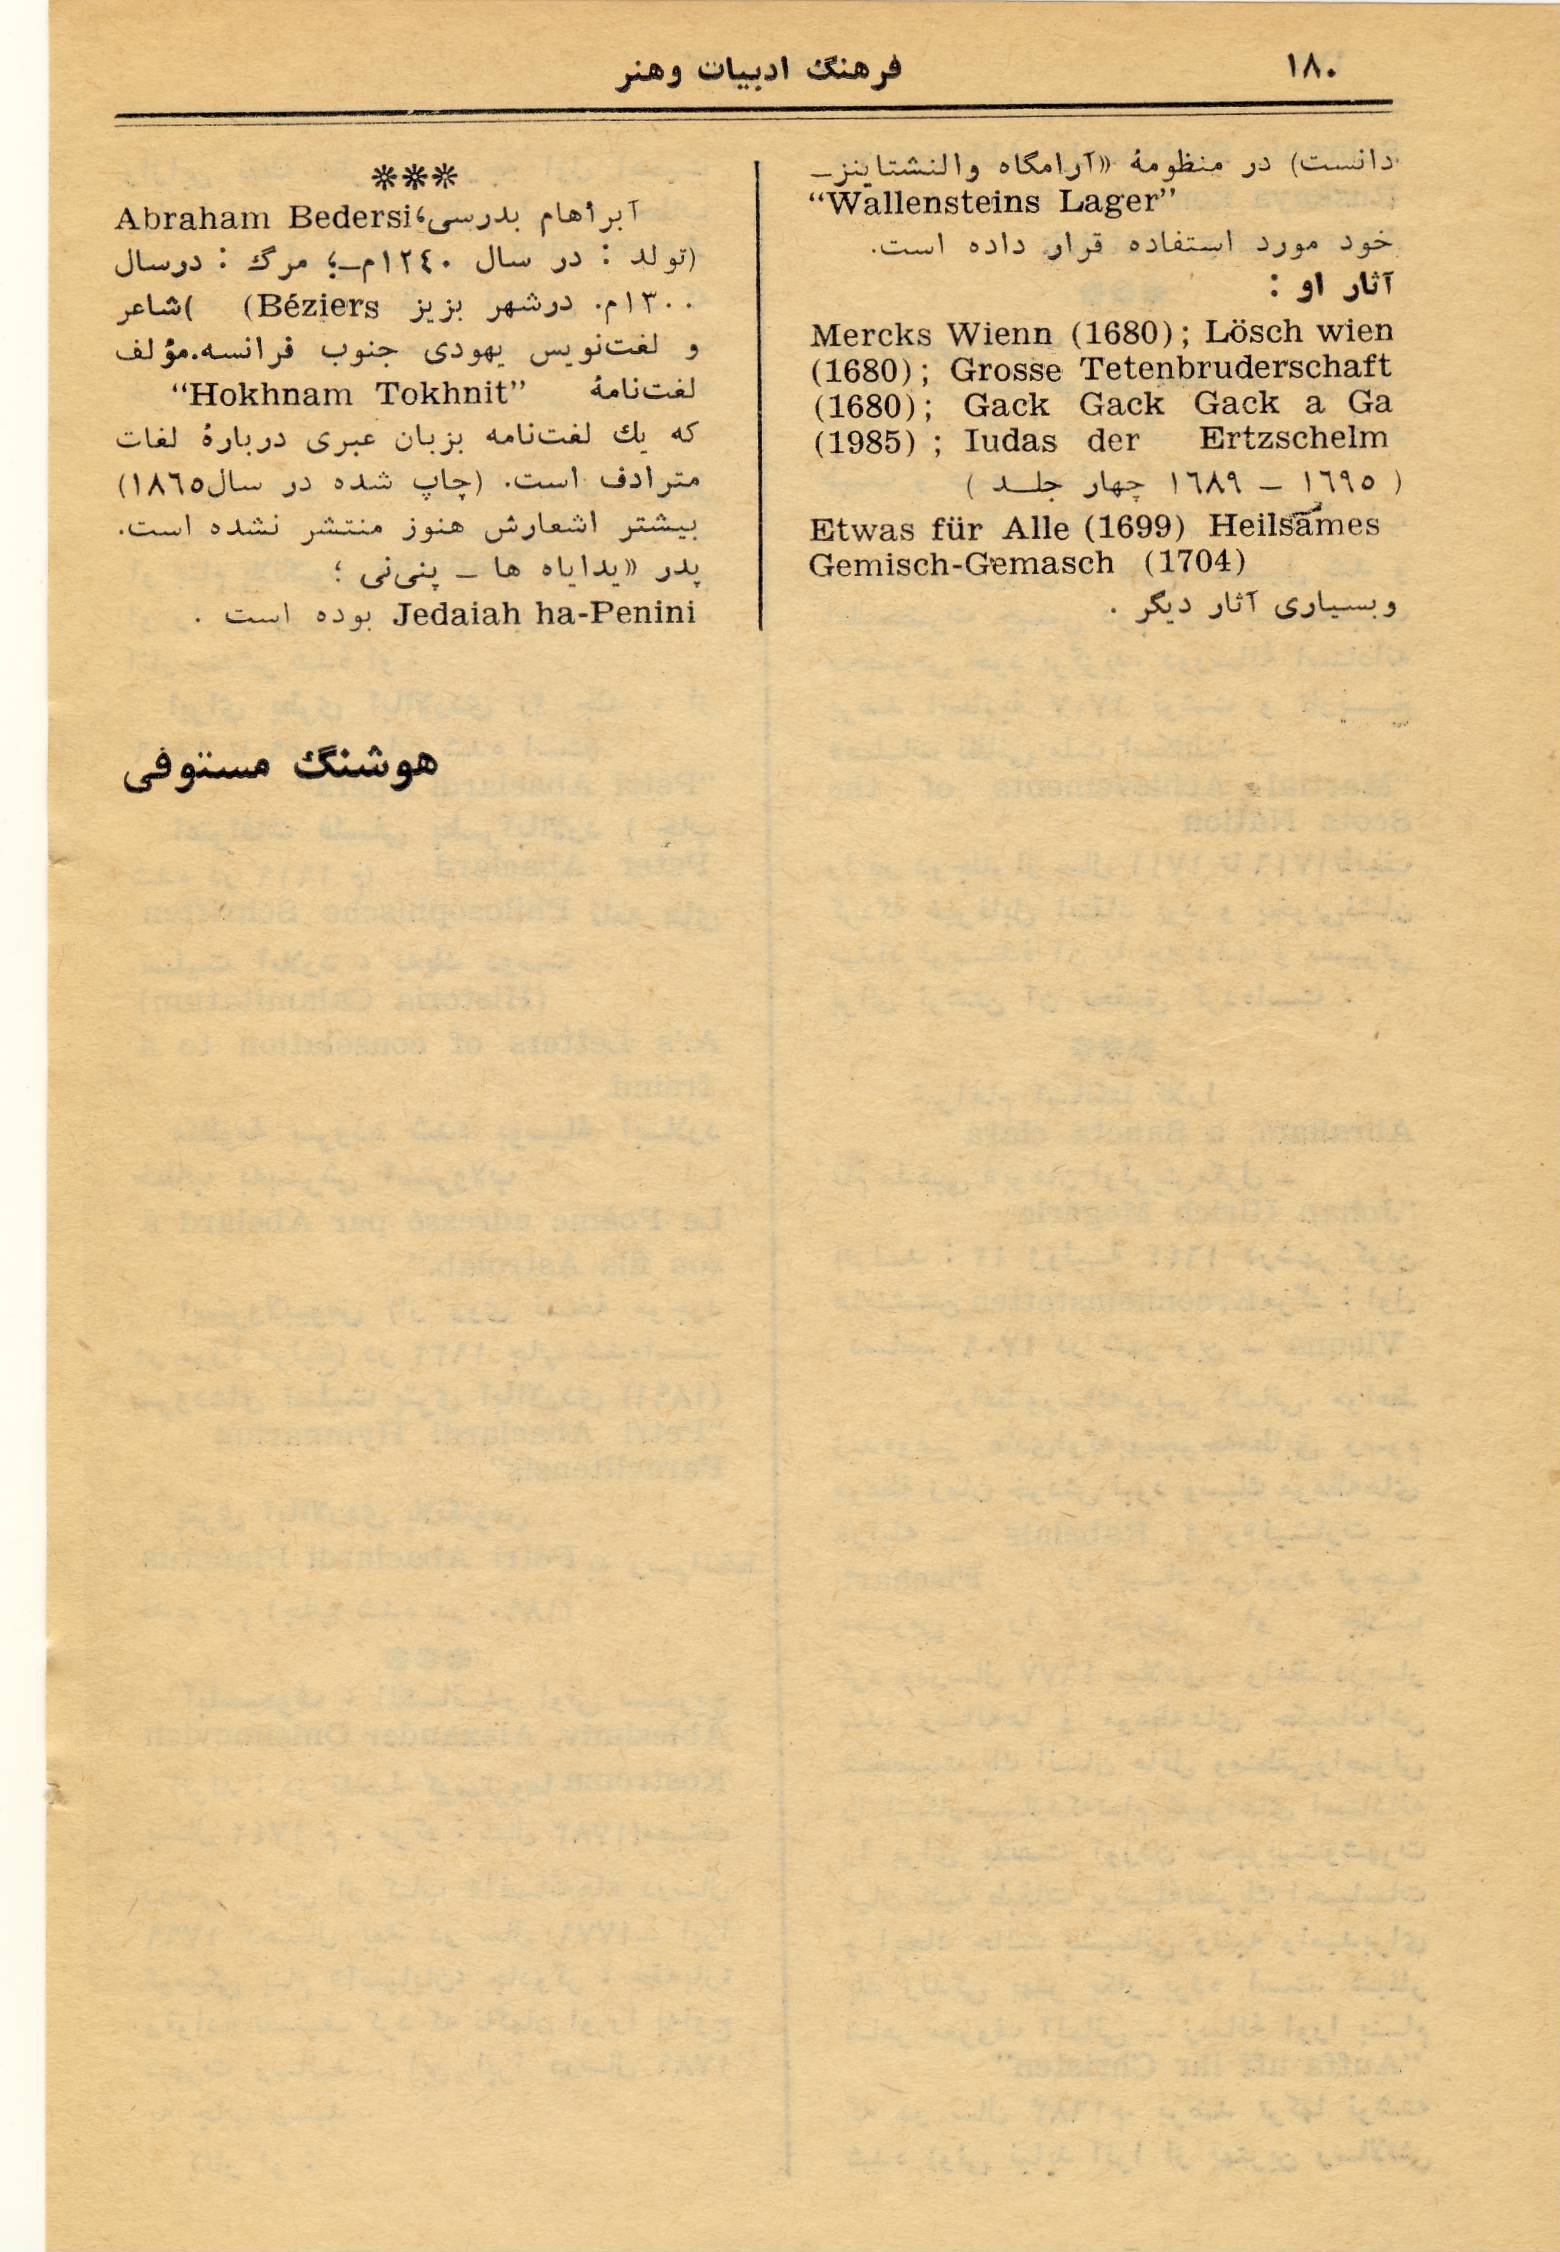 ۱۸۰
فرهنگ ادبیات وهنر
دانست) در منظومهٔ «آرامگاه والنشتاینز–
“Wallensteins Lager”
خود مورد استفاده قرار داده است.
آثار او :
Mercks Wienn (1680); Lösch wien
(1680); Grosse Tetenbruderschaft
(1680); Gack Gack Gack a Ga
(1985) ; Iudas der Ertzschelm
( ١٦٩٥ – ١٦٨٩ چهار جلـد )
Etwas für Alle (1699) Heilsames
Gemisch-Gemasch (1704)
وبسیاری آثار دیگر .
***
آبراهام بدرسی؛ Abraham Bedersi
(تولد : در سال ١٢٤٠م–؛ مرگ : درسال
١٣٠٠م. درشهر بزیز Béziers) )شاعر
و لغت‌نویس یهودی جنوب فرانسه.مؤلف
لغت‌نامهٔ “Hokhnam Tokhnit”
که یك لغت‌نامه بزبان عبری دربارهٔ لغات
مترادف است. (چاپ شده در سال١٨٦٥)
بیشتر اشعارش هنوز منتشر نشده است.
پدر «یدایاه ها – پنی‌نی ؛
Jedaiah ha-Penini بوده است .
هوشنگ مستوفی